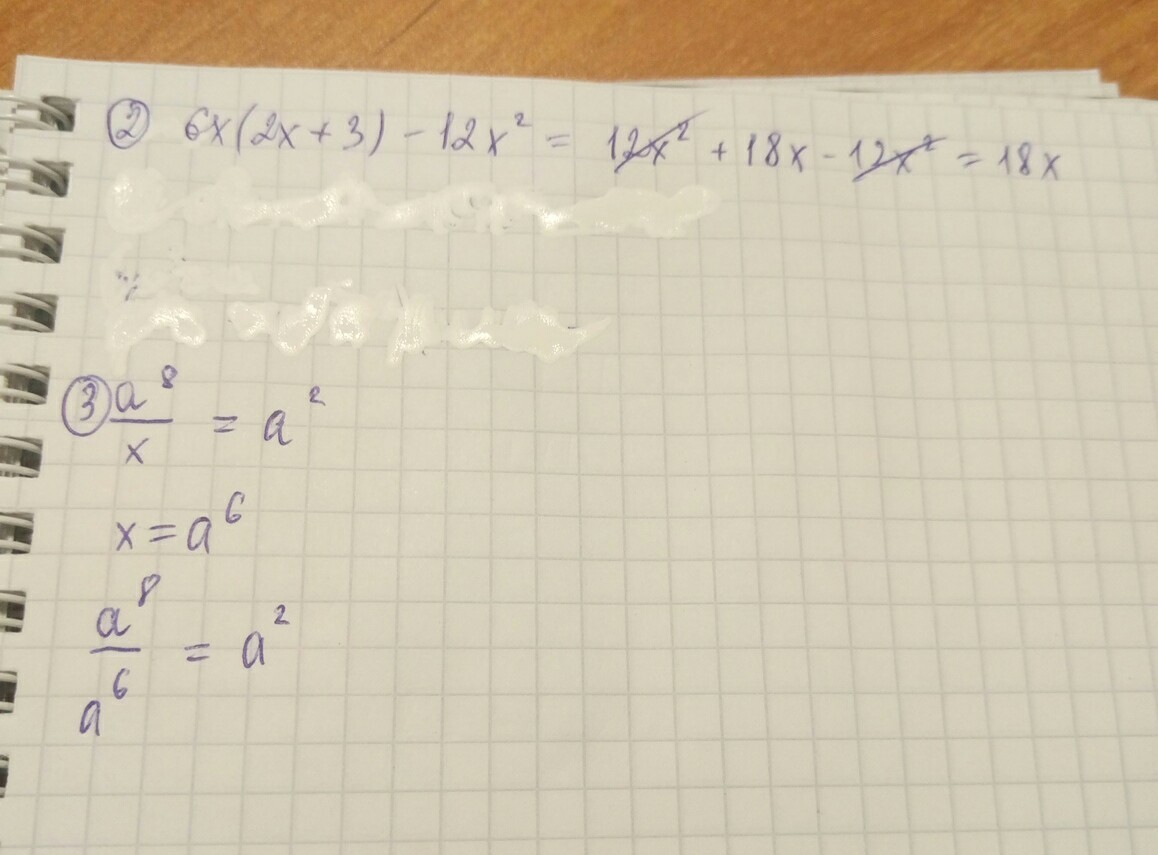 ② 6x(2x+3) - 12x² = 12x² + 18x - 12x² = 18x
③ a⁸/x = a²
x = a⁶
a⁸/a⁶ = a²